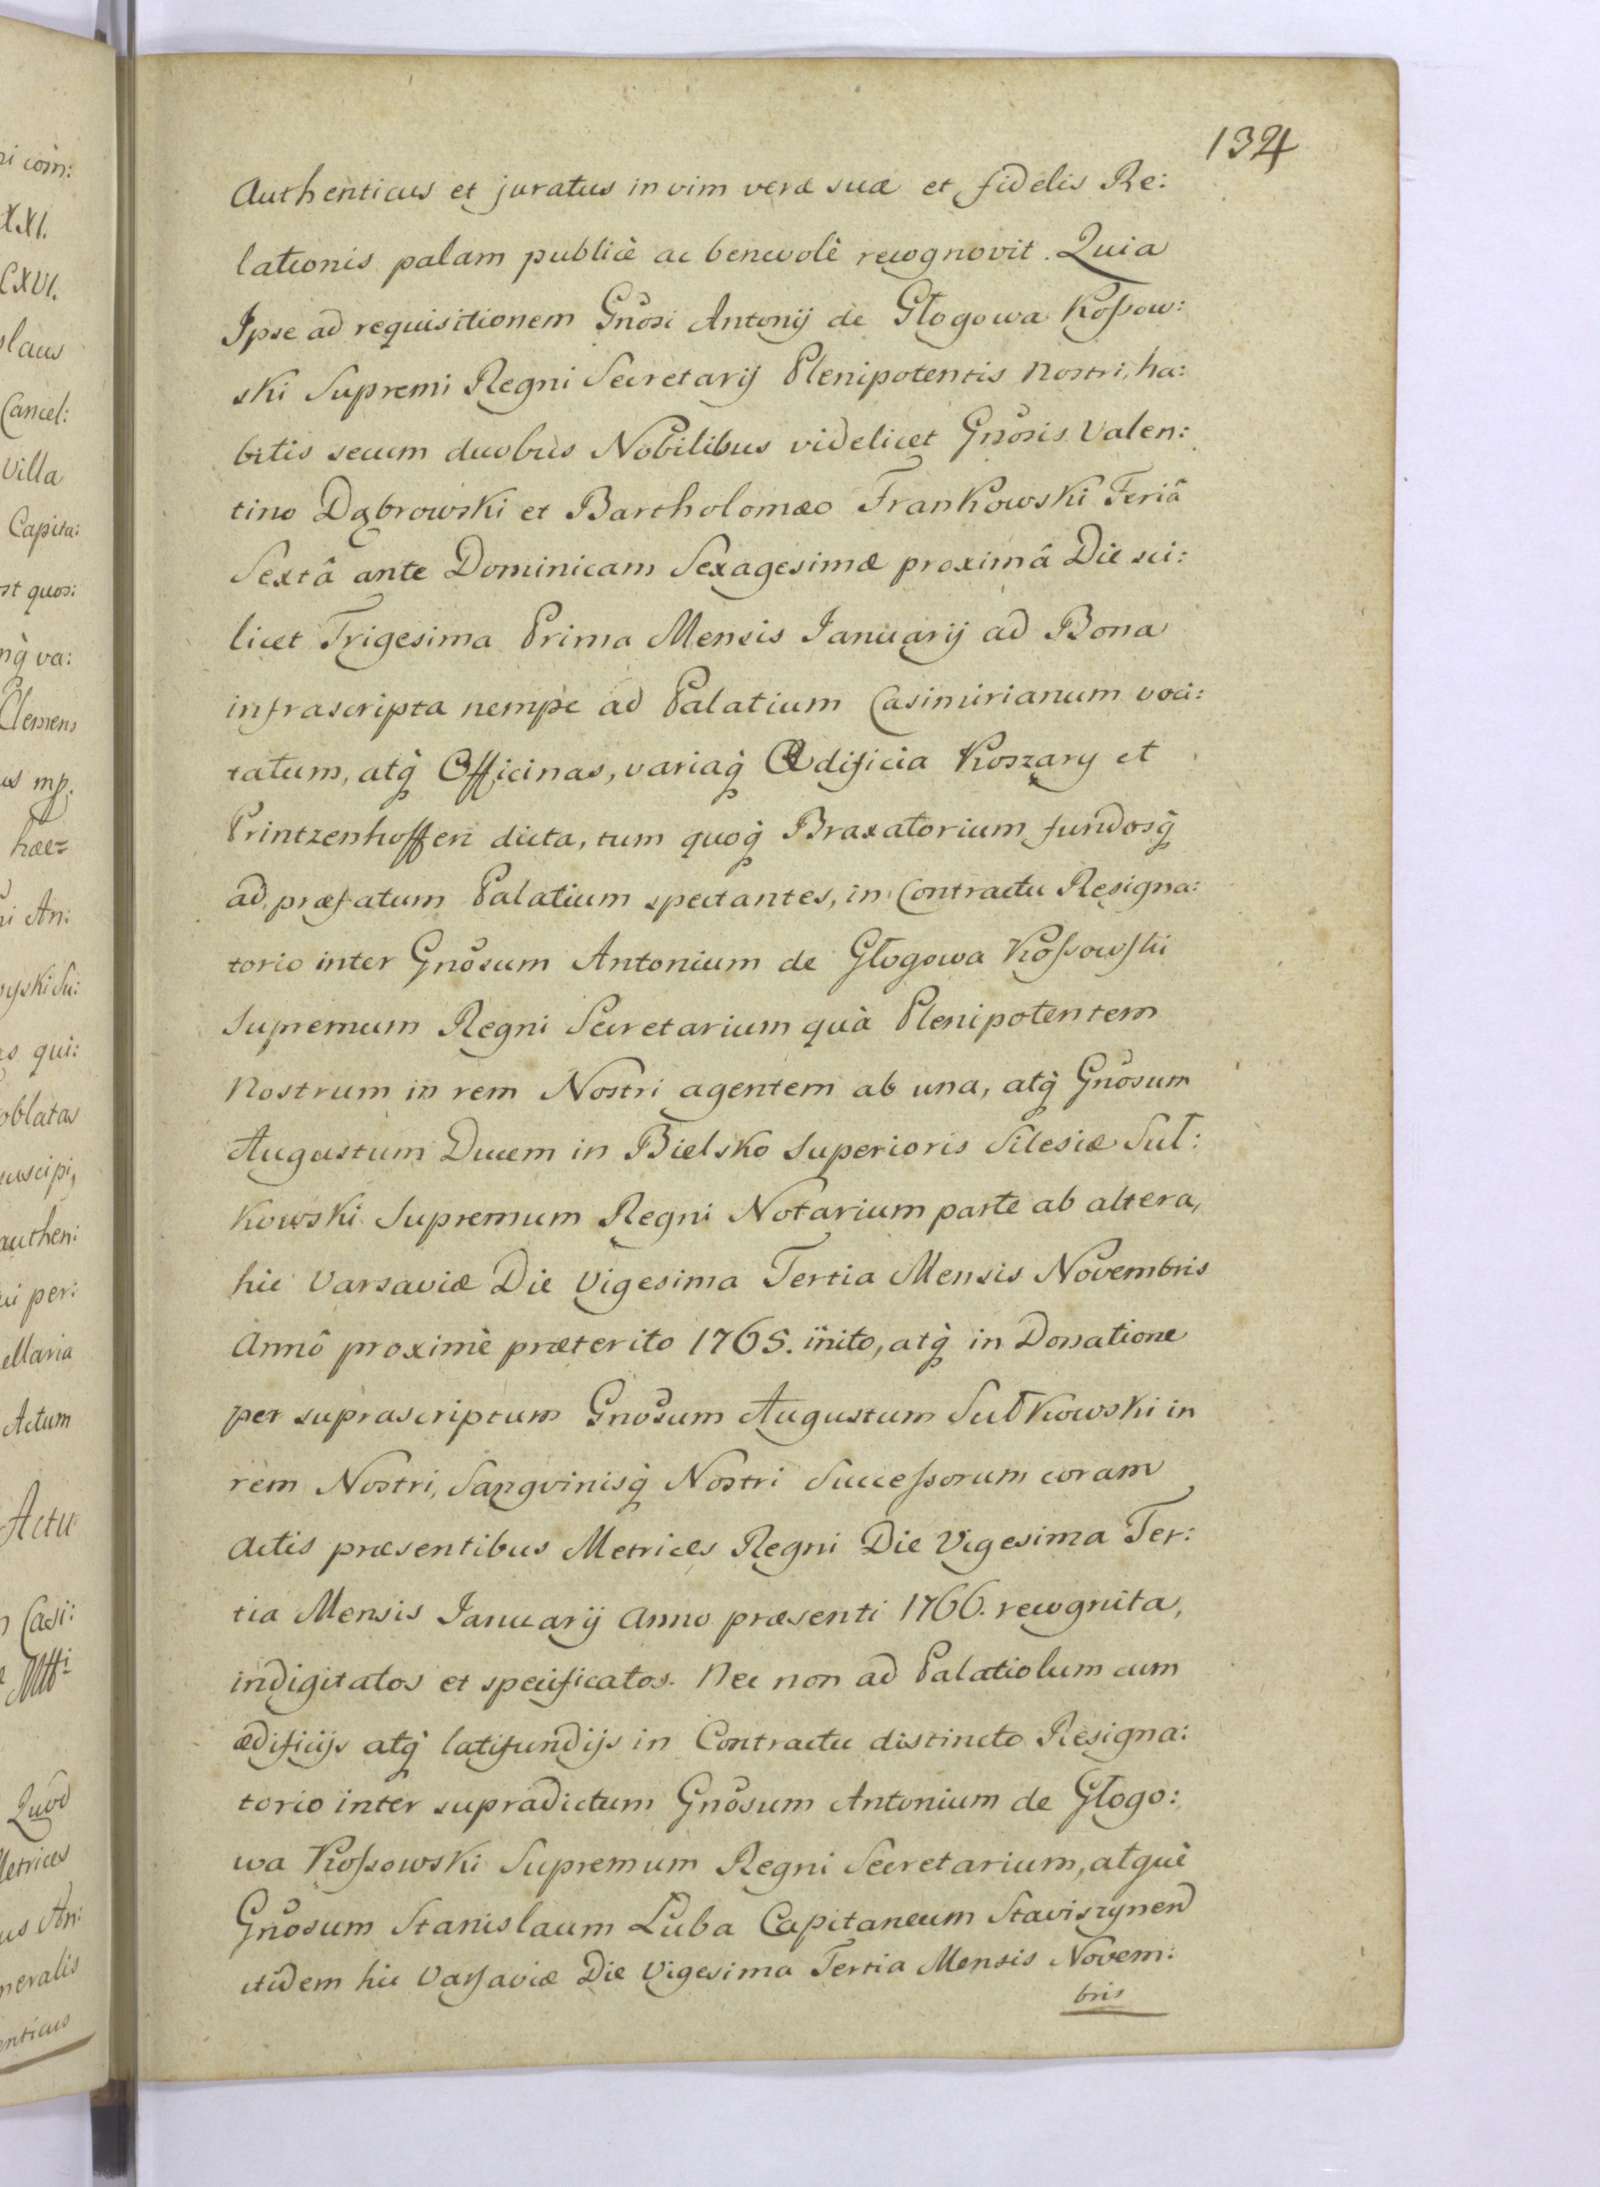 134
Authenticus et juratus in vim veræ suæ et fidelis Re:
lationis palam publicè ac benevolè recognovit. Quia
Ipse ad requisitionem Gnosi Antonij de Głogowa Kossow:
ski Supremi Regni Secretarij Plenipotentis Nostri, ha:
bitis secum duobus Nobilibus videlicet Gnosis Valen:
tino Dąbrowski et Bartholomæo Frankowski Feriâ
Sextâ ante Dominicam Sexagesimæ proximâ Die sci:
licet Trigesima Prima Mensis Januarij ad Bona
infrascripta nempe ad Palatium Casimirianum voci:
tatum, atq̀ Officinas, variaq̀ Ædificia Koszary et
Printzenhofferi dicta, tum quoq̀ Braxatorium fundosq̀
ad præfatum Palatium spectantes, in Contractu Resigna:
torio inter Gnosum Antonium de Głogowa Kossowski
Supremum Regni Secretarium quà Plenipotentem
Nostrum in rem Nostri agentem ab una, atq̀ Gnosum
Augustum Ducem in Bielsko Superioris Silesiæ Suł:
kowski Supremum Regni Notarium parte ab altera,
hic Varsaviæ Die Vigesima Tertia Mensis Novembris
Annô proximè præterito 1765. inito, atq̀ in Donatione
per suprascriptum Gnosum Augustum Sułkowski in
rem Nostri, Sangvinisq̀ Nostri Successorum coram
Actis præsentibus Metrices Regni Die Vigesima Ter:
tia Mensis Januarij Anno præsenti 1766. recognita,
indigitatos et specificatos. Nec non ad Palatiolum cum
ædificijs atq̀ latifundijs in Contractu distincto Resigna:
torio inter supradictum Gnosum Antonium de Głogo:
wa Kossowski Supremum Regni Secretarium, atquè
Gnosum Stanislaum Łuba Capitaneum Staviszynen
itidem hic Varsaviæ Die Vigesima Tertia Mensis Novem:
bris